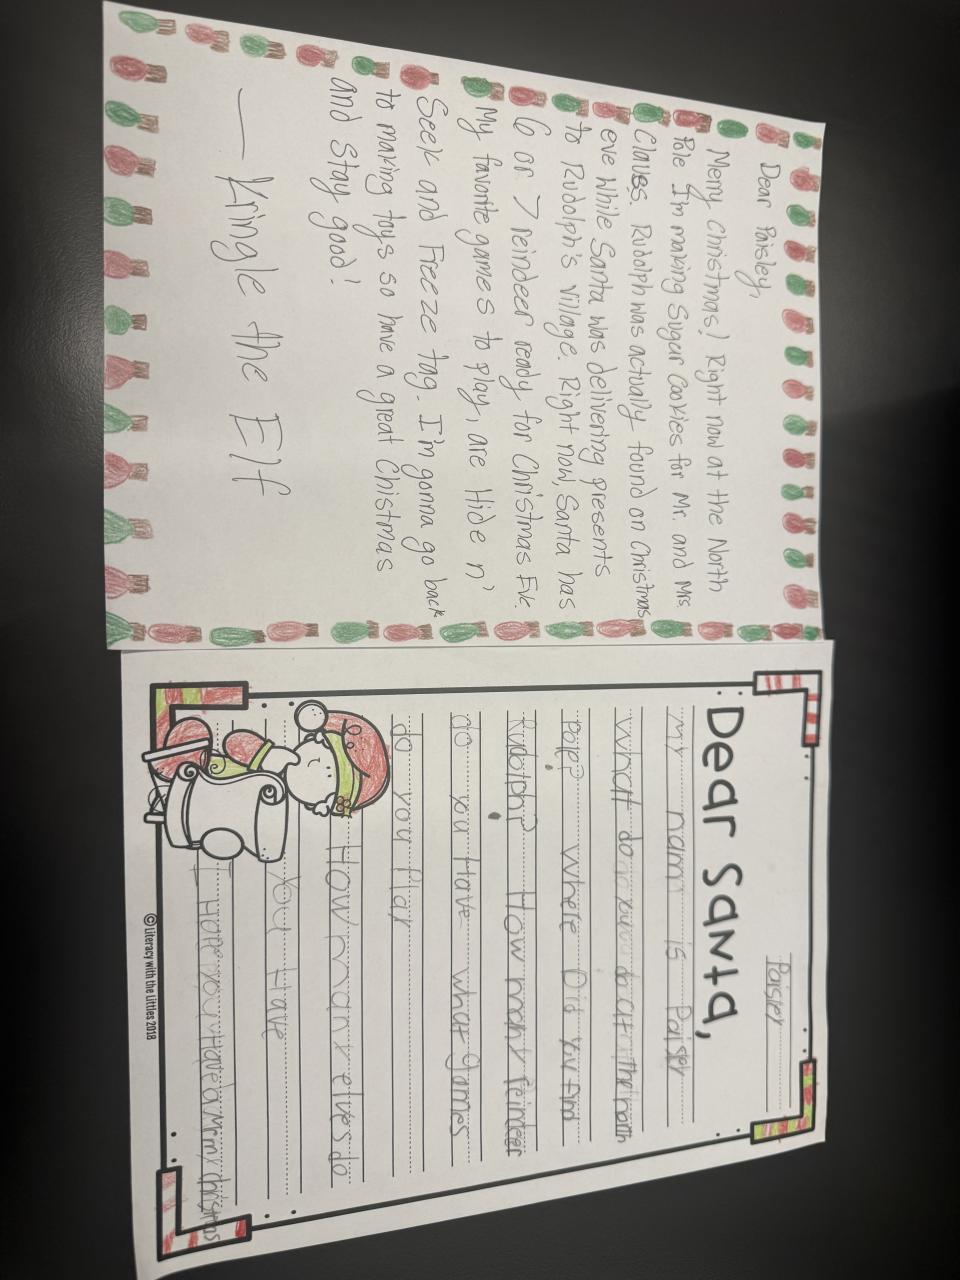 Dear Paisley,
Merry Christmas! Right now at the North
Pole I'm making Sugar Cookies for Mr. and Mrs.
Claues. Rudolph was actually found on Christmas
eve while Santa was delivering presents
to Rudolph's village. Right now, Santa has
6 or 7 reindeer ready for Christmas Eve.
My favorite games to play, are Hide n'
Seek and Freeze tag. I'm gonna go back
to making toys so have a great Chistmas
and stay good!
— Kringle the Elf
Paisley
Dear Santa,
my nam is Paisley
what do you do at the north
pole? where Did you find
Rudolph? How many reindeer
do you Have what games
do you Play
How many elves do
You Have
I Hope you Have a Mrmy christmas
©Literacy with the Littles 2018